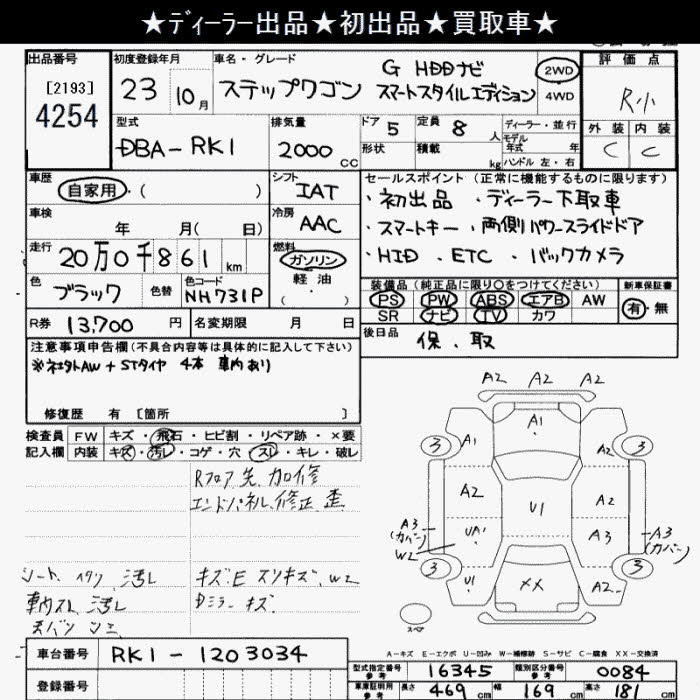 ★ディーラー出品★初出品★買取車★
出品番号
[2193]
4254
初度登録年月
23 10月
車名・グレード
ステップワゴン G HDDナビ スマートスタイルエディション
2WD
4WD
評価点
R小
外装 内装
C C
型式
DBA-RK1
排気量
2000cc
ドア 5
形状
定員 8人
積載 kg
ディーラー・並行
モデル年式 年
ハンドル 左・右
車歴
自家用・( )
車検
年 月( 日)
走行
20万0千861km
色
ブラック
色替
色コード
NH731P
シフト
IAT
冷房
AAC
燃料
ガソリン
軽油
( ・ )
セールスポイント(正常に機能するものに限ります)
・初出品 ・ディーラー下取車
・スマートキー・両側パワースライドドア
・HID . ETC . バックカメラ
装備品(純正品に限り○をつけてください)
PS PW ABS エアB AW
SR ナビ TV カワ
新車保証書
有・無
R券 13,700円
名変期限 月 日
後日品
保.取
注意事項申告欄(不具合内容等は具体的に記入して下さい)
※社外AW+STタイヤ 4本 車内あり
修復歴 有 [箇所 ]
検査員記入欄
FW キズ・飛石・ヒビ割・リペア跡・×要
内装 キズ・汚レ・コゲ・穴・スレ・キレ・破レ
Rフロア先 加修
エンドパネル 修正 歪
シート 汚レ
車内スレ 汚レ
キズ・E スリキズ、W2
Dミラー キズ
A2 A2 A2
A1
3 A1 A2 3
A2 U1 A2
A3(カバー) UA1 A3 A3(カバー)
W2
3 U1 XX A2 3
スペア
A-キズ E-エクボ U-凹み W-補修跡 S-サビ C-腐食 XX-交換済
車台番号 RK1-1203034
登録番号
型式指定番号 参考 16345
類別区分番号 参考 0084
車庫証明用 参考 長さ 469cm 幅 169cm 高さ 181cm